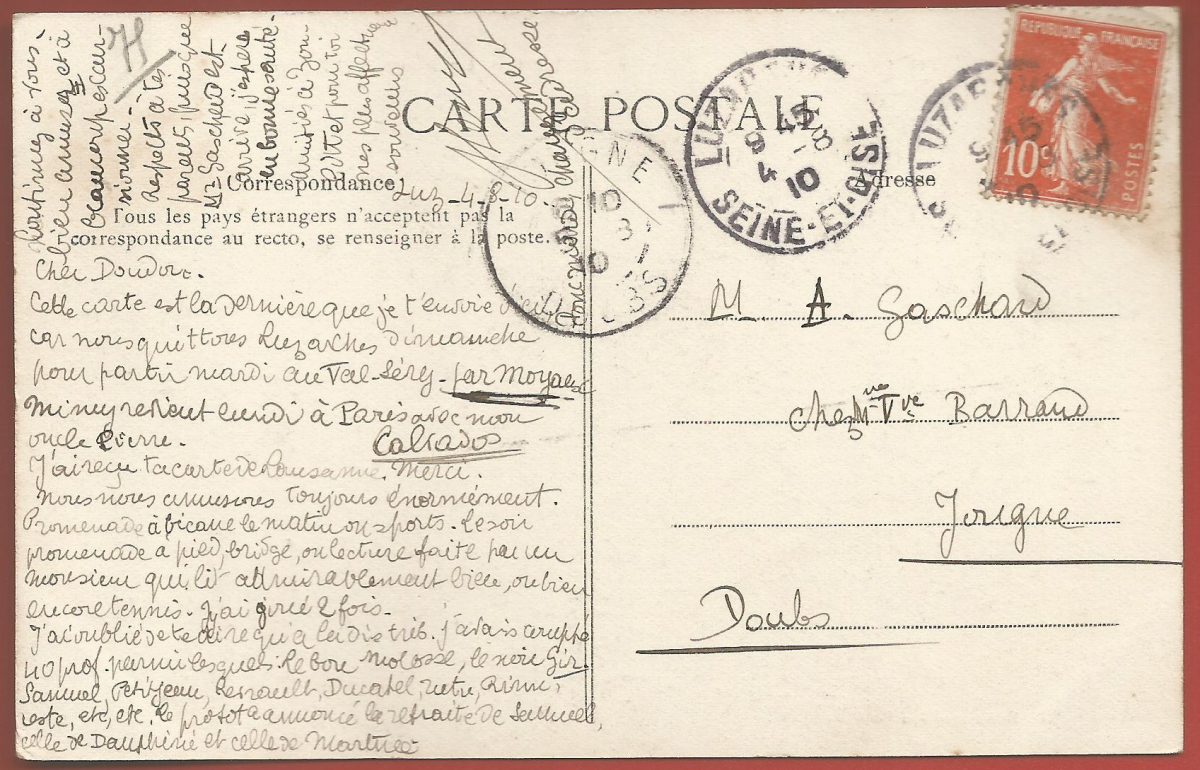 CARTE POSTALE
Correspondance
Adresse
Tous les pays étrangers n'acceptent pas la
correspondance au recto, se renseigner à la poste.
Luz-4-8-10.
Cher Doudou.
Cette carte est la dernière que je t'envoie d'ici
car nous quittons Luzarches dimanche
pour partir mardi au Val-Séry-par Moyaux
Calvados
Mimey revient lundi à Paris avec mon
oncle Pierre.
J'ai reçu ta carte de Lausanne. Merci.
Nous nous amusons toujours énormément.
Promenade à bécane le matin ou sports. Le soir
promenade à pied, bridge, ou lecture faite par un
monsieur qui lit admirablement bien, ou bien
encore tennis. J'ai joué 2 fois.
J'ai oublié de te dire qu'à la distrib. j'avais
40 prof. parmi lesquels: le bon Molosse, le noir
Samuel, Petitjean, Renault, Ducatel,
reste, etc, etc. le proto a annoncé la retraite de Samuel,
celle de Dauphiné et celle de
Continuez à vous
bien amuser et à
respects à tes
parents puisque
Mr Gaschard est
arrivé, j'espère
en bonne santé
amitiés à Jean
petit et pour toi
mes plus affectueux
souvenirs
LUZARCHES
15
9
4 -8
10
SEINE-ET-OISE
JOUGNE
10
8
10
DOUBS
REPUBLIQUE FRANÇAISE
10c
POSTES
LUZARCHES
M. A. Gaschard
chez Mme Vve Barraud
Jougne
Doubs